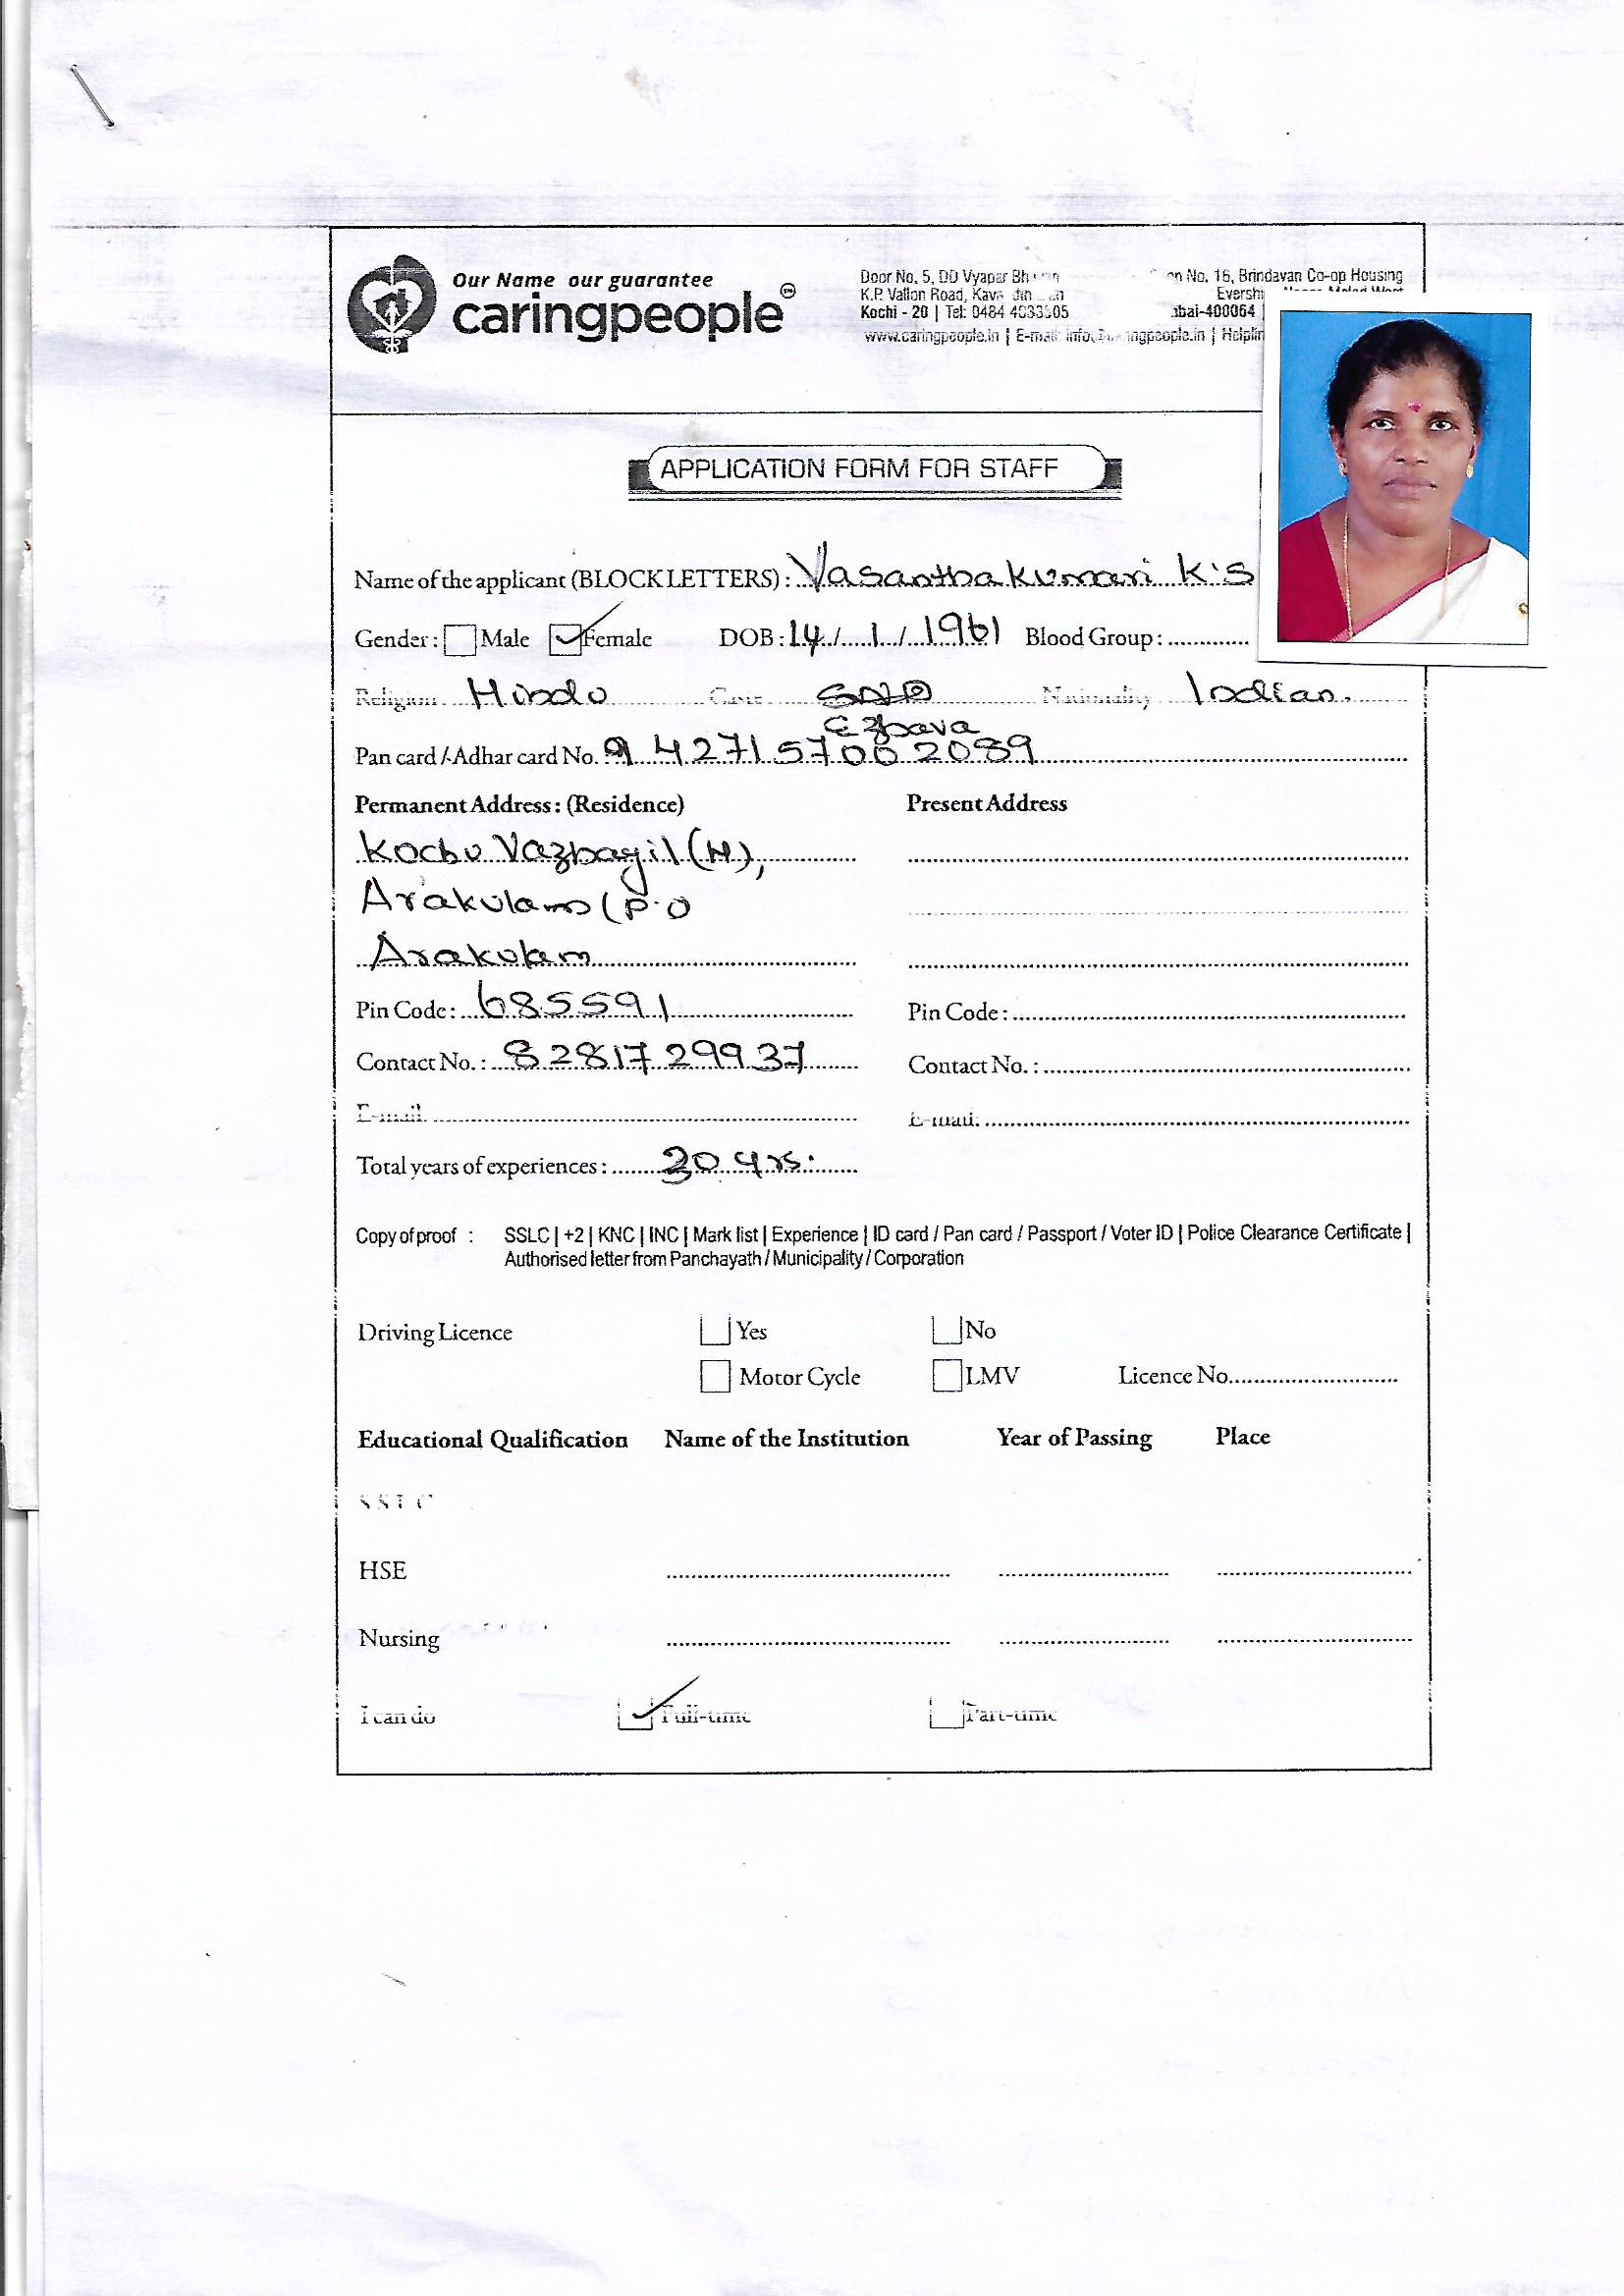 Our Name our guarantee
caringpeople
Door No. 5, DD Vyapar
K.P. Vallon Road,
Kochi - 20 | Tel: 0484 4033505
No. 16, Brindavan Co-op Housing
400064
www.caringpeople.in | E-mail:
APPLICATION FORM FOR STAFF
Name of the applicant (BLOCK LETTERS) : Vasanthakumari K.S
Gender : Male Female DOB : 14 / 1 / 1961 Blood Group :
Religion Hindu Nationality Indian.
Ezhava
Pan card / Adhar card No.
Permanent Address : (Residence) Present Address
Kochu Vazhayil (H),
Arakulam (P.O
Arakulam
Pin Code : 685591 Pin Code :
Contact No. : 8281729937 Contact No. :
E-mail: E-mail:
Total years of experiences : yrs.
Copy of proof : SSLC | +2 | KNC | INC | Mark list | Experience | ID card / Pan card / Passport / Voter ID | Police Clearance Certificate |
Authorised letter from Panchayath / Municipality / Corporation
Driving Licence Yes No
Motor Cycle LMV Licence No.
Educational Qualification Name of the Institution Year of Passing Place
SSLC
HSE
Nursing
I can do Full-time Part-time